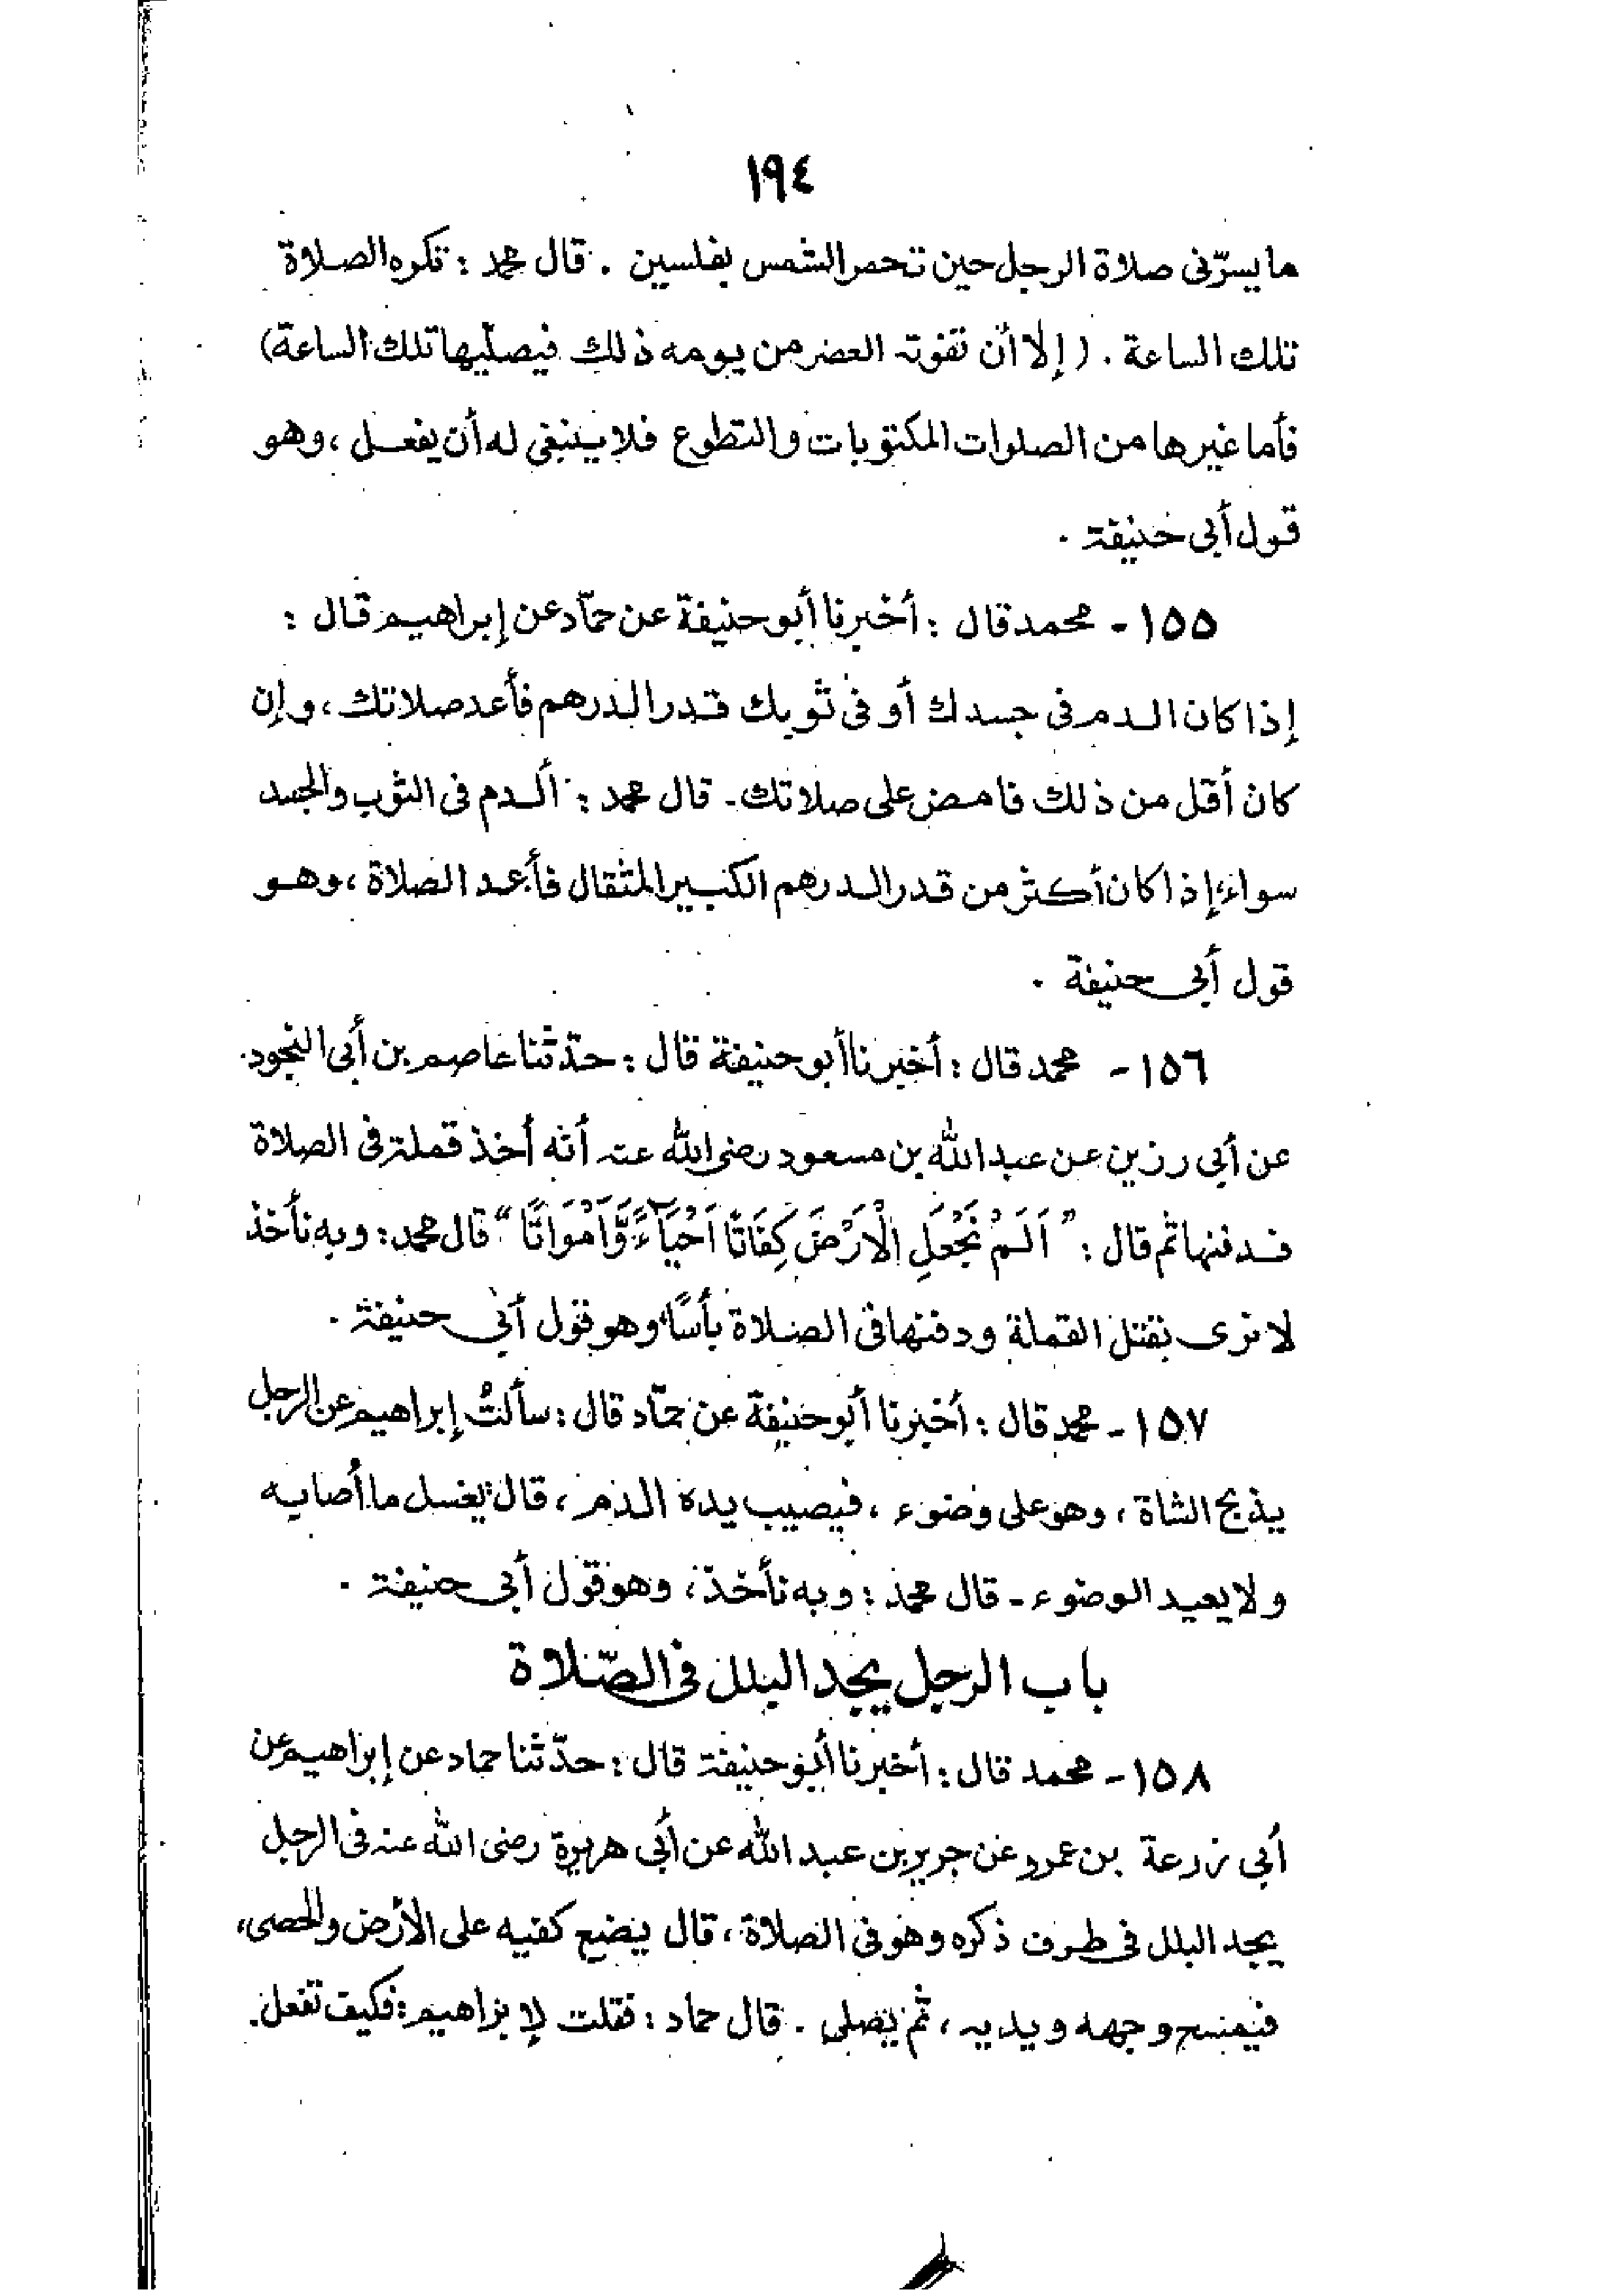 ١٩٤
ما يسرّنى صلاة الرجل حين تحمر الشمس بفلسين . قال محمد : تكره الصلاة
تلك الساعة . ( إلا أن تفوته العصر من يومه ذلك فيصلّيها تلك الساعة )
فأما غيرها من الصلوات المكتوبات والتطوع فلا ينبغى له أن يفعل ، وهو
قول أبى حنيفة .
١٥٥ - محمد قال : أخبرنا أبو حنيفة عن حمّاد عن إبراهيم قال :
إذا كان الدم فى جسدك أو فى ثوبك قدر الدرهم فأعد صلاتك ، وإن
كان أقل من ذلك فامض على صلاتك - قال محمد : الدم فى الثوب والجسد
سواء، إذا كان أكثر من قدر الدرهم الكبير المثقال فأعد الصلاة ، وهو
قول أبى حنيفة .
١٥٦ - محمد قال : أخبرنا أبو حنيفة قال : حدّثنا عاصم بن أبى النجود
عن أبى رزين عن عبد الله بن مسعود رضى الله عنه أنه أخذ قملة فى الصلاة
فدفنها ثم قال : " اَلَمْ نَجْعَلِ الْاَرْضَ كِفَاتًا اَحْيَآءً وَّاَمْوَاتًا " قال محمد : وبه نأخذ
لا نرى بقتل القملة ودفنها فى الصلاة بأسًا، وهو قول أبى حنيفة .
١٥٧ - محمد قال : أخبرنا أبو حنيفة عن حمّاد قال : سألتُ إبراهيم عن الرجل
يذبح الشاة ، وهو على وضوء ، فيصيب يده الدم ، قال يغسل ما أصابه
ولا يعيد الوضوء - قال محمد : وبه نأخذ ، وهو قول أبى حنيفة .
باب الرجل يجد البلل فى الصّلاة
١٥٨ - محمد قال : أخبرنا أبو حنيفة قال : حدّثنا حماد عن إبراهيم عن
أبى زرعة بن عمرو عن جرير بن عبد الله عن أبى هريرة رضى الله عنه فى الرجل
يجد البلل فى طرف ذكره وهو فى الصلاة ، قال يضع كفيه على الأرض والحصى،
فيمسح وجهه ويديه ، ثم يصلى . قال حماد : فقلت لإبراهيم : فكيف تفعل .